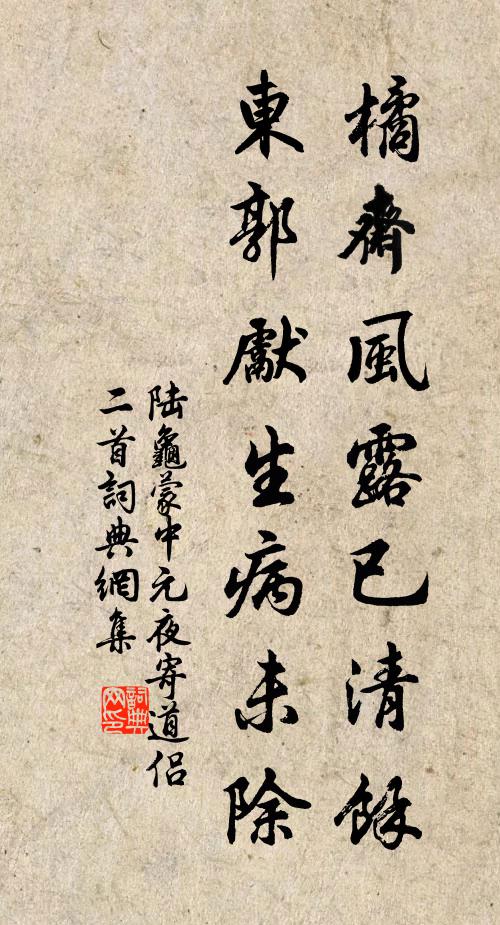 橘齋風露已清餘
東郭獻生病未除
陸龜蒙中元夜寄道侶
二首詞典網集
詞典
网印